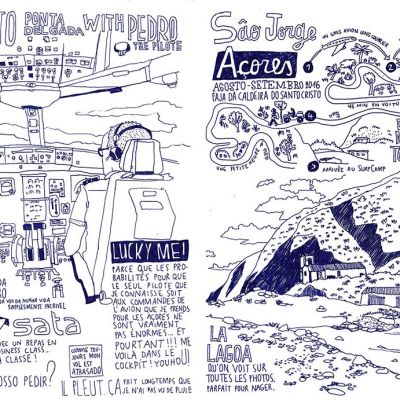 TO PONTA DELGADA WITH PEDRO
THE PILOTE
LUCKY ME!
PARCE QUE LES PRO-
BABILITÉS POUR QUE
LE SEUL PILOTE QUE
JE CONNAISSE SOIT
AUX COMMANDES DE
L'AVION QUE JE PRENDS
POUR LES AÇORES NE
SONT VRAIMENT
PAS ENORMES... ET
POURTANT!!! ME
VOILÀ DANS LE
COCKPIT! YOUHOU!
DA MINHA VIDA
SIMPLESMENTE INCRÍVEL
sata
EC UN REPAS EN
SINESS CLASS...
A CLASSE!
OSSO PEDIR?
COMME TOU-
JOURS MON
VOL EST
ATRASADO
IL PLEUT. ÇA FAIT LONGTEMPS QUE
JE N'AI PAS VU DE PLUIE
São Jorge
Açores
AGOSTO - SETEMBRO 2016
FAJÃ DA CALDEIRA DO SANTO CRISTO
1
UN GROS AVION LONG COURRIER
2
4
UNE PETITE
3 ARRIVÉE AU SURFCAMP
LA
LAGOA
QU'ON VOIT SUR
TOUTES LES PHOTOS.
PARFAIT POUR NAGER.